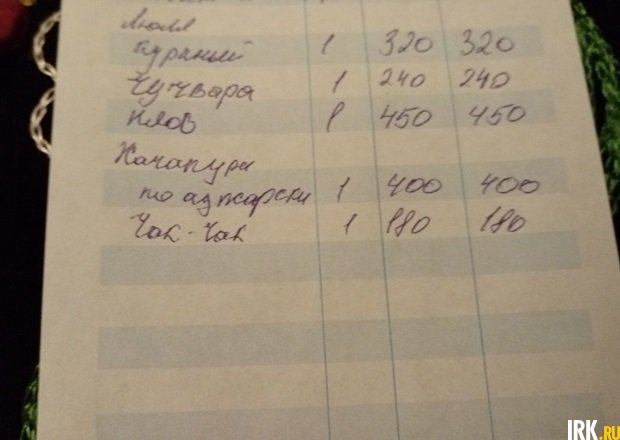 Люля
куриный 1 320 320
Чучвара 1 240 240
плов 1 450 450
Хачапури
по аджарски 1 400 400
Чак-Чак 1 180 180
IRK.RU